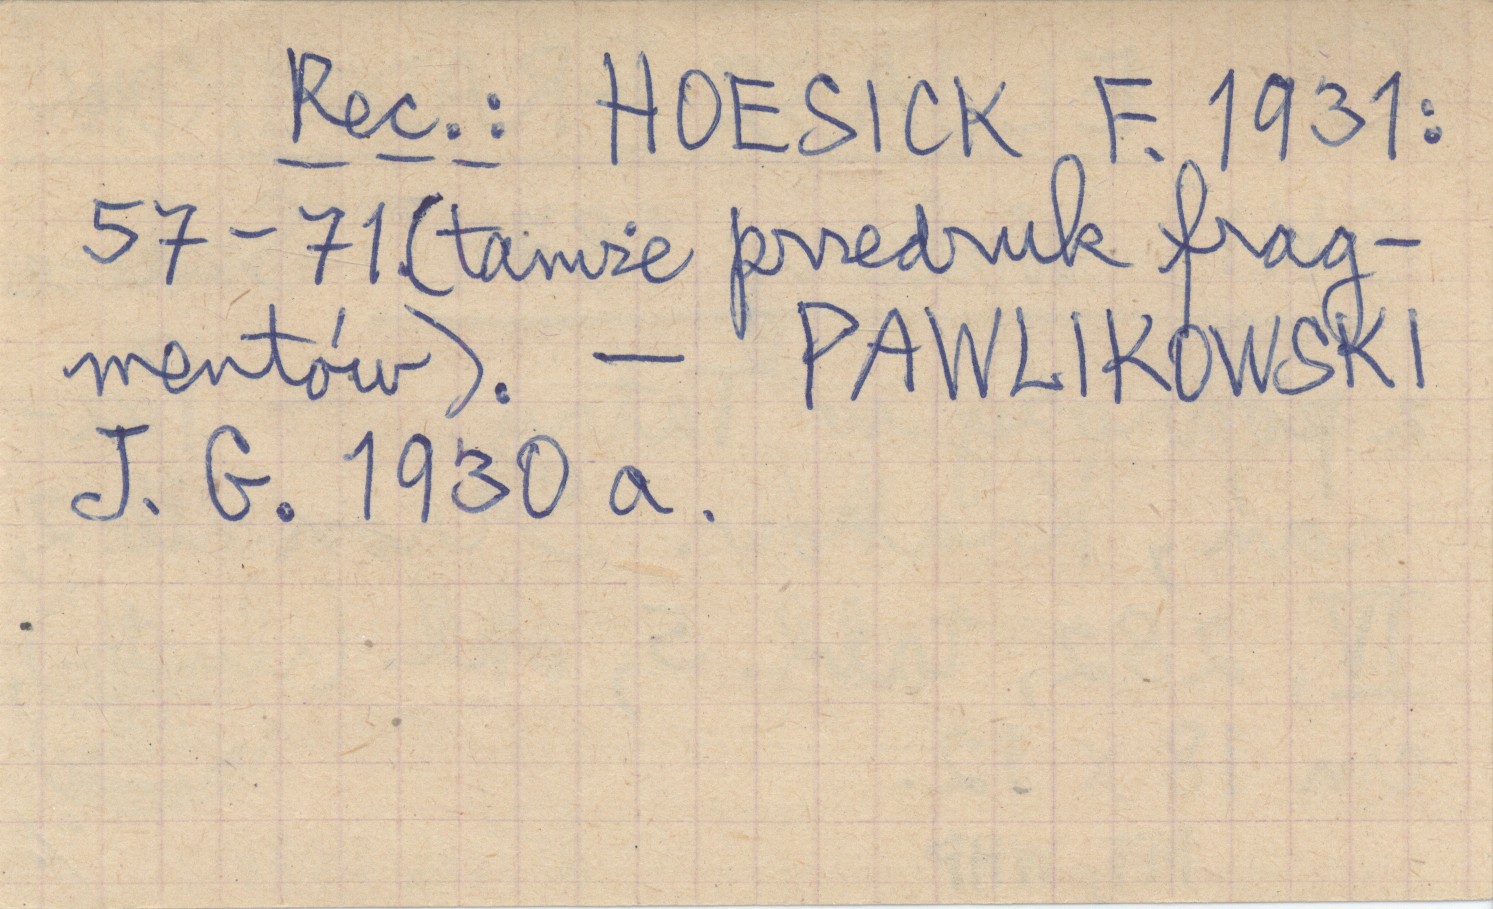 Rec.: HOESICK F. 1931:
57-71 (tamże przedruk frag-
mentów). — PAWLIKOWSKI
J. G. 1930 a.